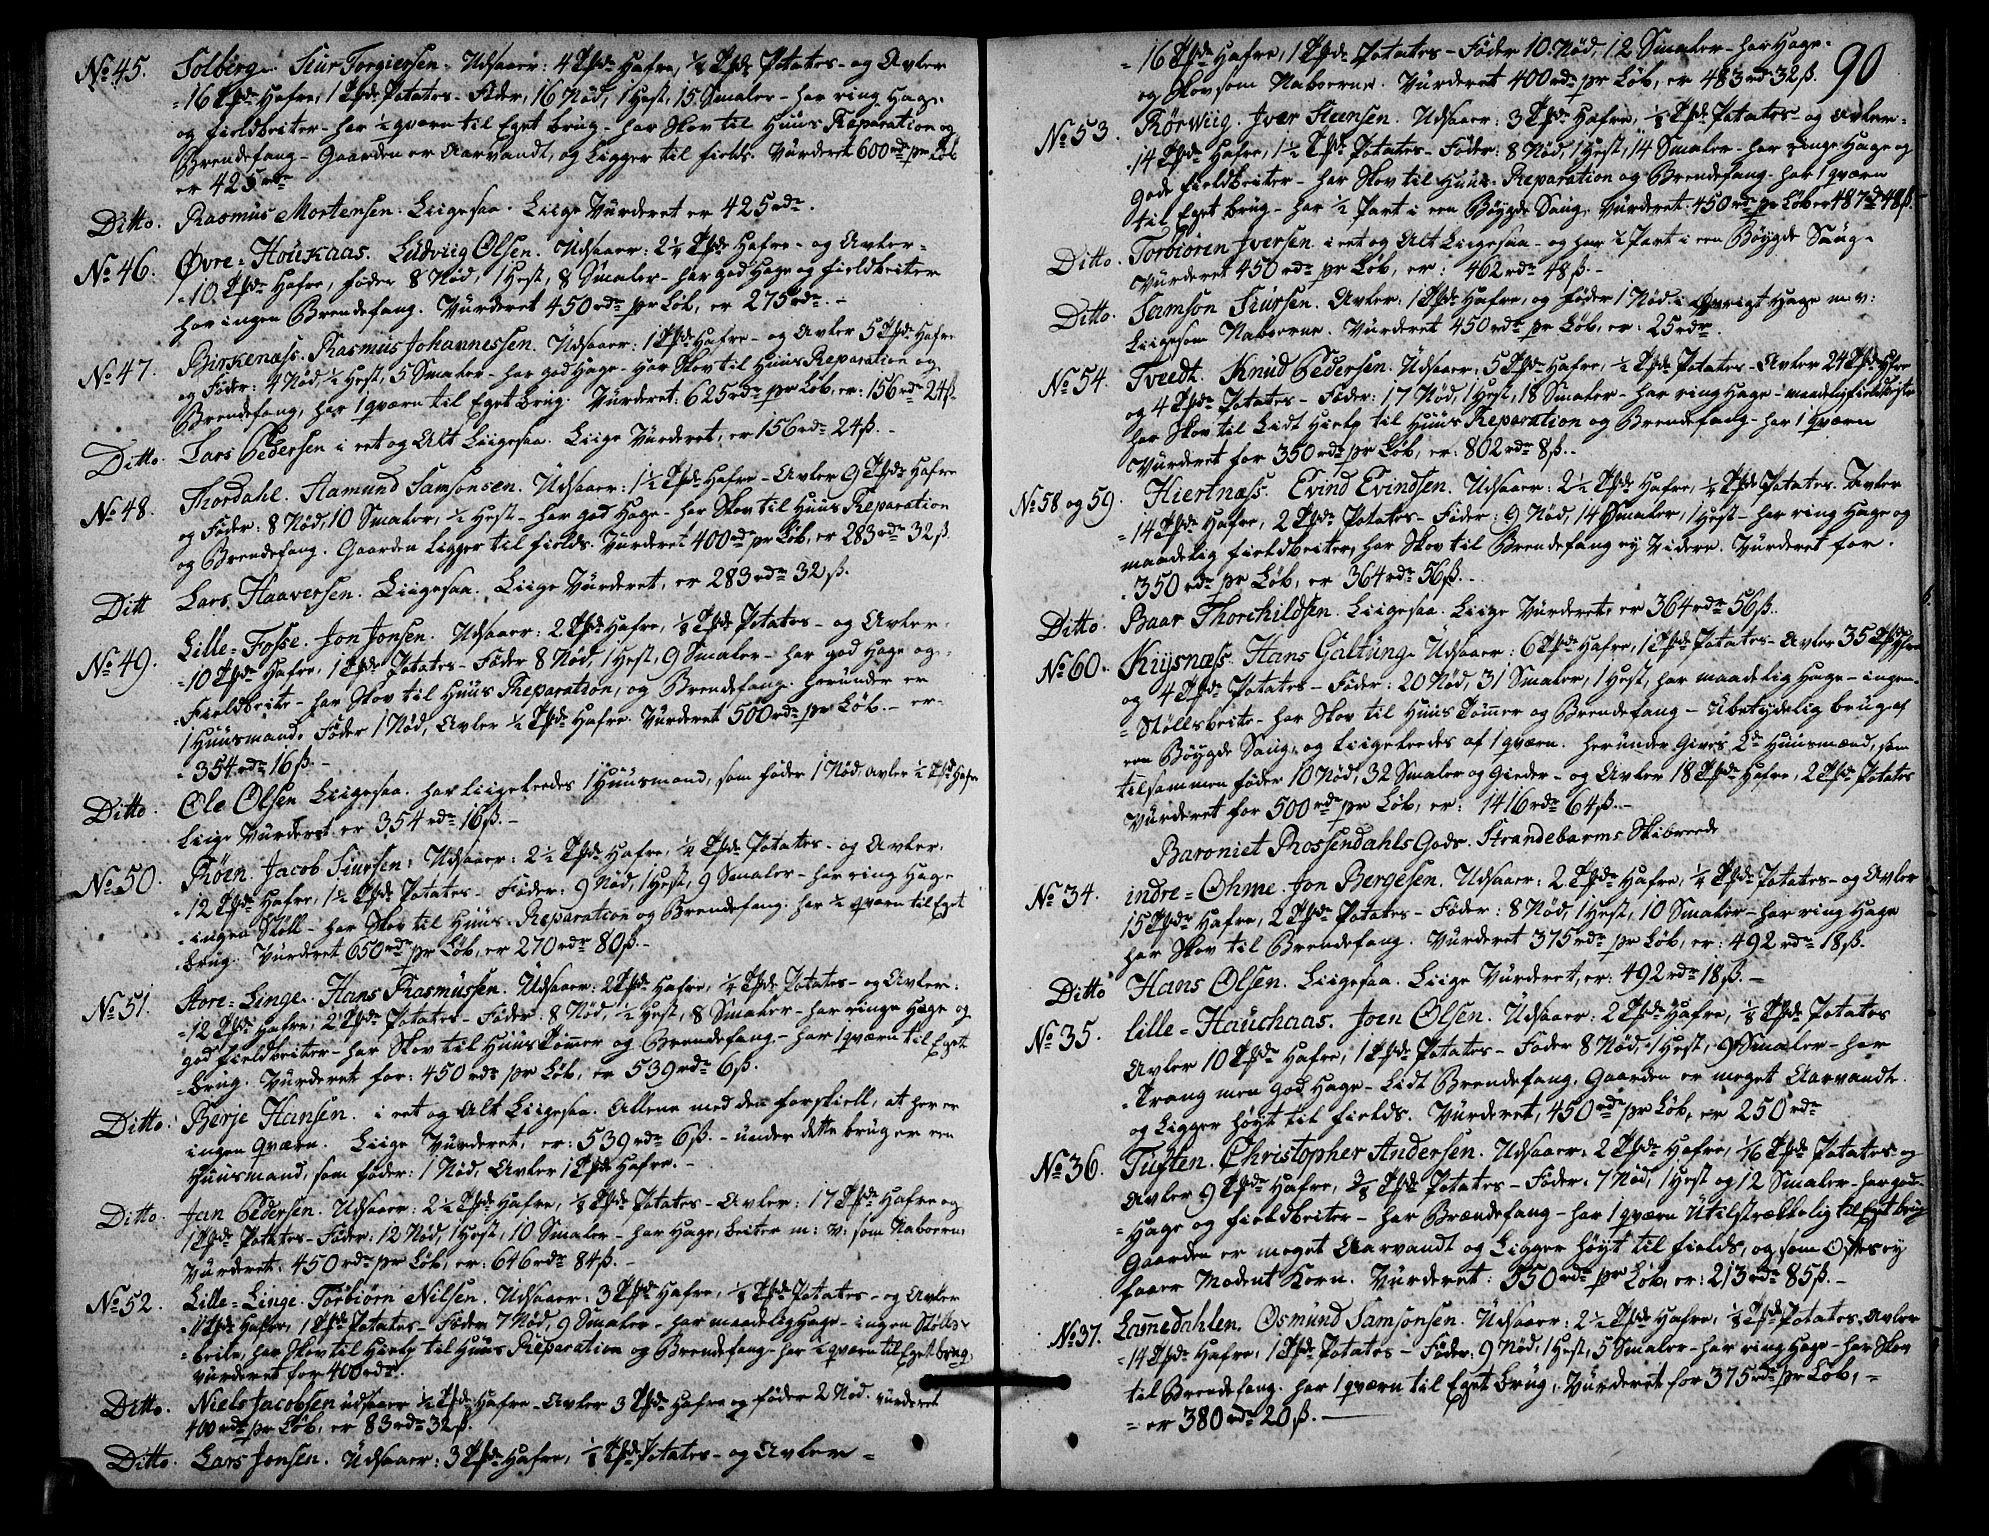 No 45. Solberg. Siur Torgiersen. Udsaaer: 4 Tpde Hafre, 1/8 Tpde Potates - og Avler
16 Tpde Hafre, 1 Tpde Potates - Föder, 16 Nöd, 1 Hest, 15 Smaler - har ring Hage
og fieldbeiter - har 1/2 qværn til Eget brug - har Skov til Huus Reparation og
Brendefang - Gaarden er Aarvandt, og Ligger til fields. Vürderet 600 rdr pr Löb
er 425 rdr
Ditto. Rasmus Mortensen. Liigesaa. Liige Vürderet er 425 rdr.
No 46. Øvre = Houkaas. Ludviig Olsen. Udsaaer: 2 1/2 Tpde Hafre - og Avler =
= 10 Tpde Hafre, föder 8 Nöd, 1 Hest, 8 Smaler - har god Hage og fieldbeiter
har ingen Brendefang. Vürderet 450 rdr pr Löb, er 275 rdr. -
No 47. Birkenæss. Rasmus Johannessen. Udsaaer: 1 Tpde Hafre - og Avler 5 Tpde Hafre
og Föder: 4 Nöd, 1/2 Hest, 5 Smaler - har god Hage - har Skov til Huus Reparation og
Brendefang, har 1 qværn til Eget brug. Vürderet: 625 rdr pr Löb, er: 156 rdr 24 ß.
Ditto. Lars Pedersen i eet og Alt Liigesaa. Liige Vürderet, er 156 rdr 24 ß. -
No 48. Thordahl. Aamund Samsonsen. Udsaaer: 1 1/2 Tpde Hafre - Avler 9 Tpde Hafre
og Föder: 8 Nöd, 10 Smaler, 1/2 Hest - har god Hage - har Skov til Huus Reparation
og Brendefang. Gaarden Ligger til fields. Vürderet 400 rdr pr Löb, er 283 rdr 32 ß.
Ditt Lars Haaversen. Liigesaa. Liige Vürderet, er 283 rdr 32 ß.
No 49. Lille = Fosse. Jon Jonsen. Udsaaer: 2 Tpde Hafre, 1/8 Tpde Potates - og Avler.
= 10 Tpde Hafre, 1 Tpde Potates - Föder 8 Nöd, 1 Hest, 9 Smaler - har god Hage og
Fieldbeite - har Skov til Huus Reparation, og Brendefang. herunder er
1 Huusmand. Föder 1 Nöd, Avler 1/2 Tpde Hafre. Vürderet 500 rdr pr Löb. - er
354 rdr 16 ß. -
Ditto. Ole Olsen Liigesaa. har liigeleedes 1 Huusmand, som föder 1 Nöd, avler 1/2 Tpd Hafre
Liige Vürderet er 354 rdr 16 ß. -
No 50. Röen. Jacob Siursen: Udsaaer: 2 1/2 Tpde Hafre, 1/4 Tpde Potates - og Avler.
= 12 Tpde Hafre, 1 1/2 Tpde Potates - Föder: 9 Nöd, 1 Hest, 9 Smaler - har ring Hage
ingen Stöll - har Skov til Huus Reparation og Brendefang. har 1/2 qværn til Eget
brug. Vürderet 650 rdr pr Löb, er 270 rdr 80 ß. -
No 51. Store = Linge. Hans Rasmussen. Udsaaer: 2 Tpde Hafre, 1/4 Tpde Potates - og Avler:
= 12 Tpde Hafre, 2 Tpde Potates - Föder: 8 Nöd, 1/2 Hest, 8 Smaler - har ringe Hage og
god fieldbeiter - har Skov til Huus Tömmer og Brendefang - har 1 qværn til Eget
brug. Vürderet for: 450 rdr pr Löb, er 539 rdr 6 ß.
Ditto: Berje Hansen. i eet og Alt Liigesaa. Allene med den forskiell, at her er
ingen qværn. Liige Vürderet, er: 539 rdr 6 ß. - under dette brug er een
Huusmand, som föder: 1 Nöd, Avler 1 Tpde Hafre. -
Ditto. Jan Pedersen. Udsaaer: 2 1/2 Tpde Hafre, 1/8 Tpde Potates - Avler: 17 Tpde Hafre og
1 Tpde Potates - Föder: 12 Nöd, 1 Hest, 10 Smaler - har Hage, beiter m: v: som Naboerne:
Vürderet: 450 rdr pr Löb, er: 646 rdr 84 ß. -
No 52. Lille = Linge. Torbiörn Nilsen. Udsaaer: 3 Tpde Hafre, 1/8 Tpde Potates - og Avler
= 11 Tpde Hafre, 1 Tpde Potates - Föder 7 Nöd, 9 Smaler - har maadelig Hage - ingen Stölls
beite, har Skov til Hielp til Huus Reparation og Brendefang - har 1/2 qværn til Eget brug,
vürderet for 400 rdr.
Ditto. Niels Jacobsen udsaaer 1/2 Tpde Hafre - Avler 3 Tpde Hafre og föder 2 Nöd. vürderet
400 rdr pr Löb, er 83 rdr 32 ß.
Ditto. Lars Jonsen. Udsaaer: 3 Tpde Hafre, 1/8 Tpde Potates - og Avler =
90
= 16 Tpde Hafre, 1 Tpde Potates - Föder 10 Nöd, 12 Smaler - har Hage
og Skov som Naboerne. Vürderet 400 rdr pr Löb, er 483 rdr 32 ß.
No 53. Rörwiig. Iver Steensen. Udsaaer: 3 Tpde Hafre, 1/8 Tpde Potates - og Avler =
14 Tpde Hafre, 1 1/2 Tpde Potates - Föder: 8 Nöd, 1 Hest, 14 Smaler - har ringe Hage og
gode fieldbeiter - har Skov til Huus Reparation og Brendefang. har 1 qværn
til Eget brug - har 1/2 Part i een Böygde Saug. Vürderet: 450 rdr pr Löb er 487 rd 48 ß.
Ditto. Torbiören Iversen i eet og Alt Liigesaa - og har 1/2 Part i een Böygde Saug.
Vürderet 450 rdr pr Löb, er: 462 rdr 48 ß. -
Ditto. Samson Siursen. Avler: 1 Tpde Hafre, og föder 1 Nöd. i Øvrigt Hage m: v:
Liigesom Naboerne. Vürderet 450 rdr pr Löb, er: 25 rdr.
No 54. Tveedt. Knud Pedersen. Udsaaer: 5 Tpde Hafre, 1/2 Tpde Potates - Avler 24 Tpde Hfre
og 4 Tpde Potates - Föder: 17 Nöd, 1 Hest, 18 Smaler - har ring Hage - maadelig fieldbeiter
har Skov til Lidt Hielp til Huus Reparation og Brendefang - har 1 qværn
Vürderet for 350 rdr pr Löb, er: 802 rdr 8 ß. -
No 58 og 59. Hiertnæss. Evind Evindsen. Udsaaer: 2 1/2 Tpde Hafre, 1/4 Tpde Potates. Avler
= 14 Tpde Hafre, 2 Tpde Potates - Föder: 9 Nöd, 14 Smaler, 1 Hest - har ring Hage og
maadelig fieldbeiter, har Skov til Brendefang ey Videre. Vürderet for
350 rdr pr Löb, er 364 rdr 56 ß. -
Ditto. Baar Thorchildsen. Liigesaa. Liige Vürderet er 364 rdr 56 ß.
No 60. Kiysnæss. Hans Galtung. Udsaaer: 6 Tpde Hafre, 1 Tpde Potates - Avler 35 Tpde Hfre
og 4 Tpde Potates - Föder: 20 Nöd, 31 Smaler, 1 Hest, har maadelig Hage - ingen
Stöllsbeite - har Skov til Huus Tömmer og Brendefang - Ubetydelig brug af
een Böygde Saug, og Liigeleedes af 1 qværn. herunder Gives 2de Huusmænd, som
tilsammen föder 10 Nöd, 32 Smaler og Gieder - og Avler 18 Tpde Hafre, 2 Tpde Potates
Vürderet for 500 rdr pr Löb, er: 1416 rdr 64 ß. -
Baroniet Rossendahls Gods. Strandebarms Skibreede
No 34. indre = Ohme. Jon Bergesen. Udsaaer: 2 Tpde Hafre, 1/4 Tpde Potates - og Avler
15 Tpde Hafre, 2 Tpde Potates - Föder: 8 Nöd, 1 Hest, 10 Smaler - har ring Hage
har Skov til Brendefang. Vürderet 375 rdr pr Löb, er: 492 rdr 18 ß.
Ditto Hans Olsen. Liigesaa. Liige Vürderet, er: 492 rdr 18 ß. -
No 35. Lille = Hauchaas. Joen Olsen. Udsaaer: 2 Tpde Hafre, 1/8 Tpde Potates
Avler 10 Tpde Hafre, 1 Tpde Potates - Föder 8 Nöd, 1 Hest, 9 Smaler - har
Trang men god Hage - Lidt Brendefang. Gaarden er meget Aarvandt.
og Ligger höyt til fields. Vürderet, 450 rdr pr Löb, er 250 rdr
No 36. Tuften. Christopher Andersen. Udsaaer: 2 Tpde Hafre, 1/16 Tpde Potates og
Avler 9 Tpde Hafre, 3/8 Tpde Potates - Föder: 7 Nöd, 1 Hest og 12 Smaler - har god
= Hage og fieldbeiter - har Brændefang - har 1 qværn Utilstrækkelig til Eget brug
Gaarden er meget Aarvandt og Ligger höyt til fields, og som Oftes ey
faaer Modent Korn. Vürderet: 350 rdr pr Löb, er: 213 rdr 85 ß. -
No 37. Lamedahlen. Osmund Samsonsen. Udsaaer: 2 1/2 Tpde Hafre, 1/8 Tpde Potates, Avler
= 14 Tpde Hafre, 1 Tpde Potates - Föder: 9 Nöd, 1 Hest, 5 Smaler - har ring Hage - har Skov
til Brendefang. har 1 qværn til Eget brug, Vürderet for 375 rdr pr Löb, =
= er 380 rdr 20 ß. -